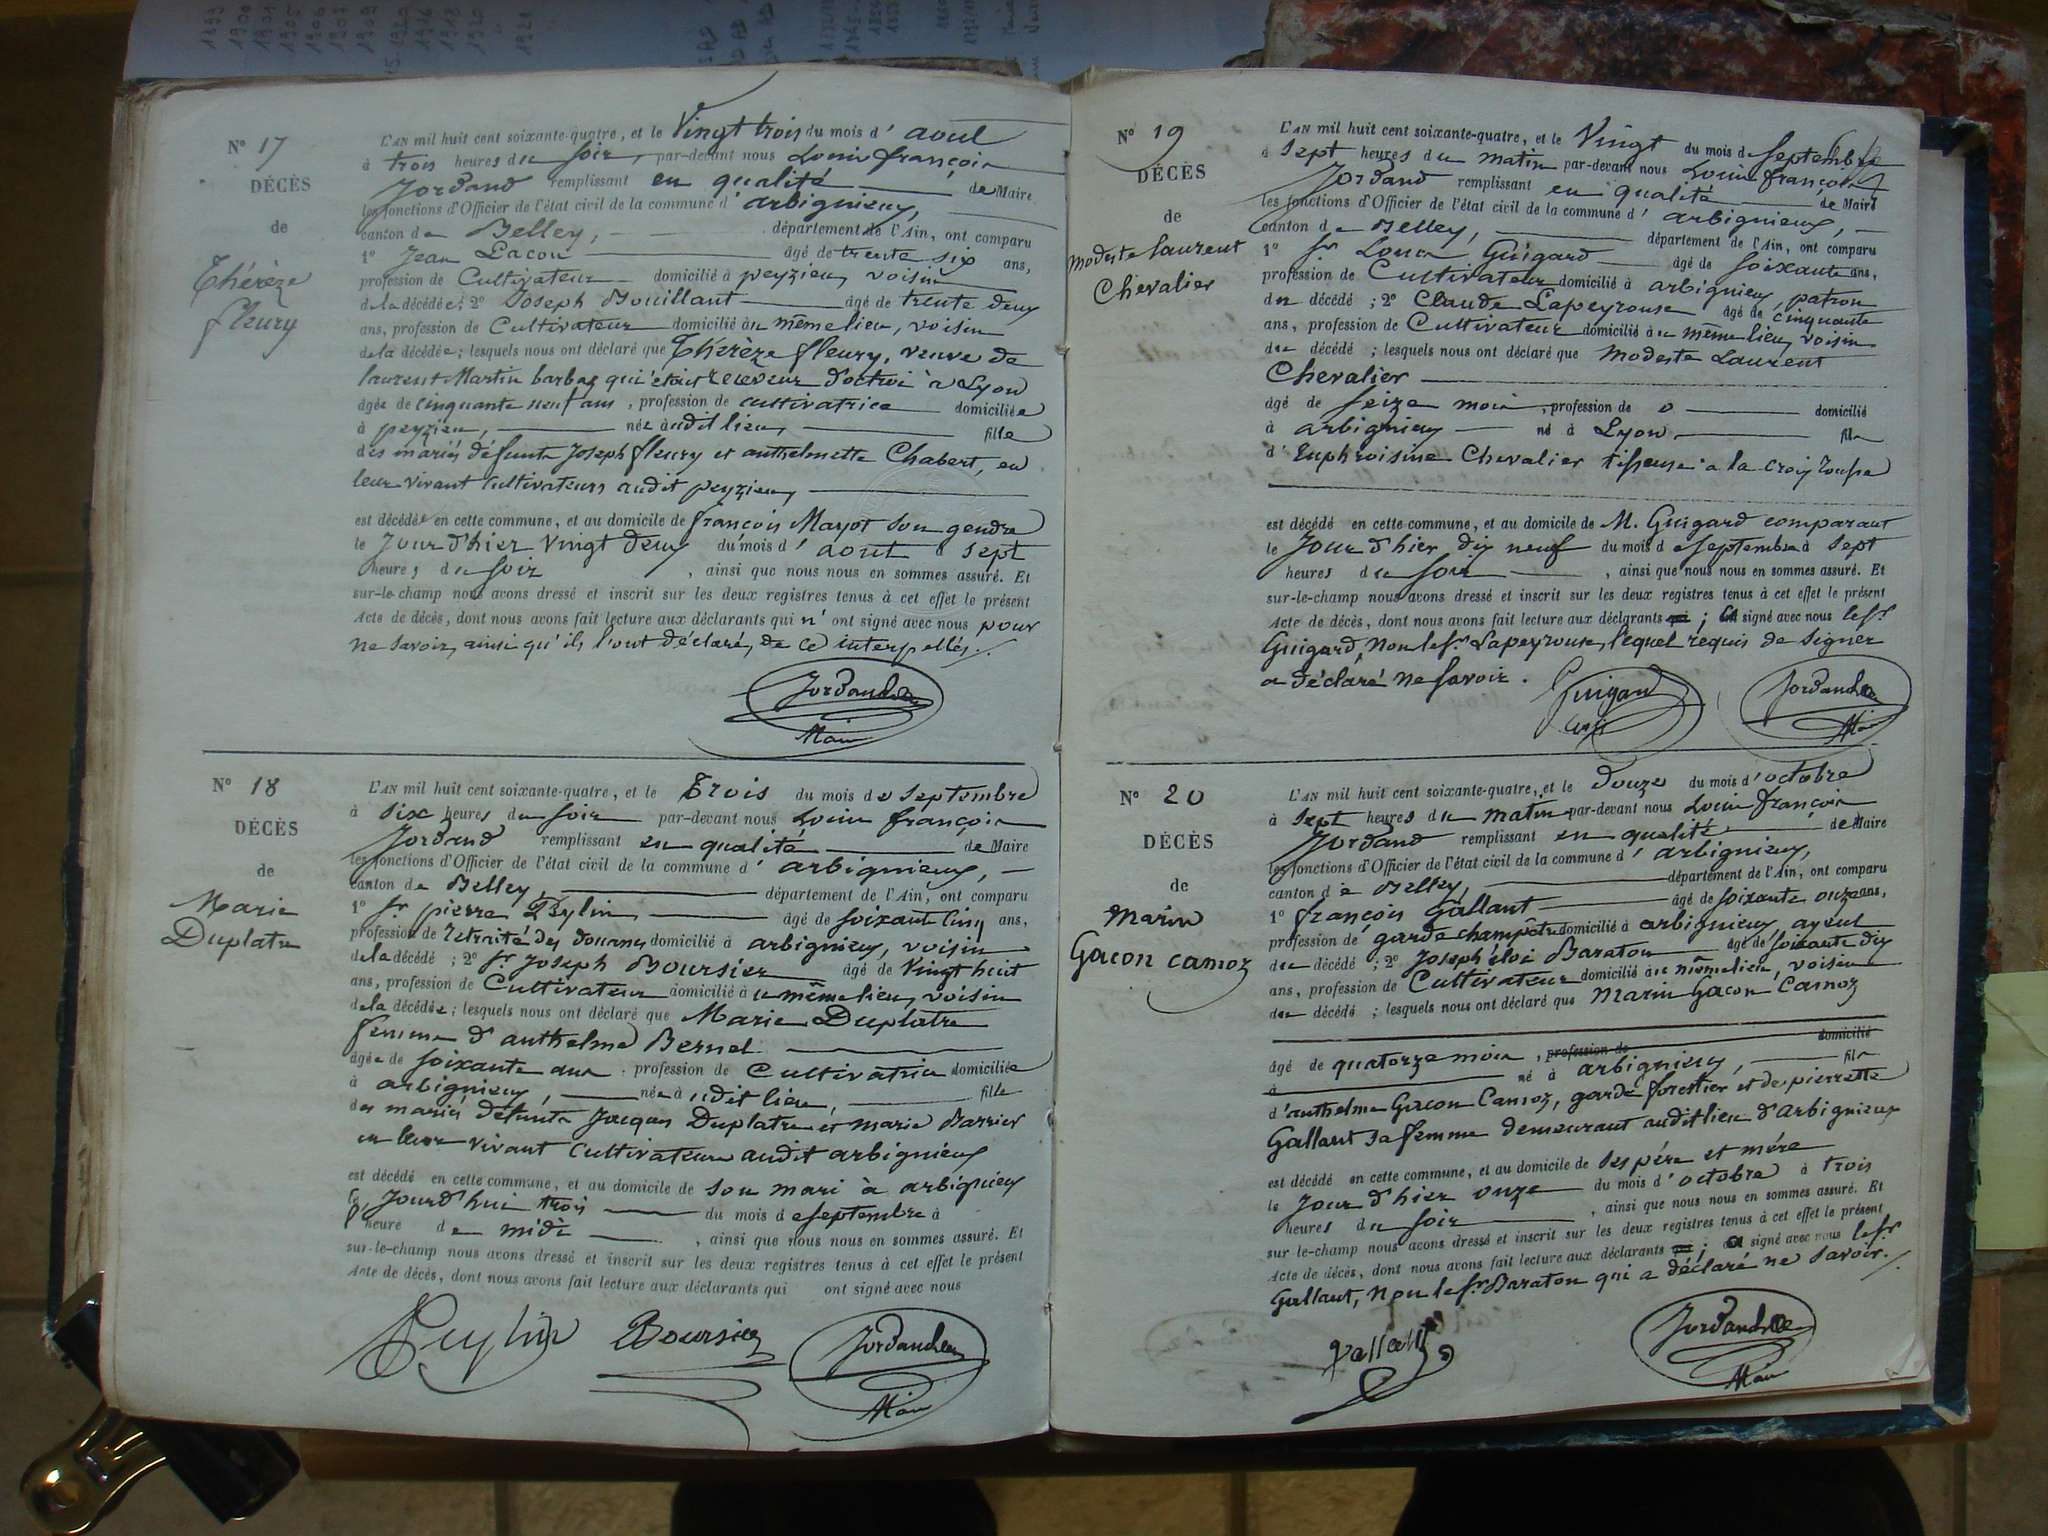 N° 17
DÉCÈS
de
Thérèze
fleury
L'AN mil huit cent soixante-quatre, et le Vingt trois du mois d' aout
à trois heures du soir, par-devant nous Louis françois
Jordand remplissant en qualité de Maire
les fonctions d'Officier de l'état civil de la commune d' arbignieu,
canton de Belley, département de l'Ain, ont comparu
1° Jean Lacou âgé de trente six ans,
profession de Cultivateur domicilié à peyzieu, voisin
de la décédée; 2° Joseph Bouillant âgé de trente deux
ans, profession de Cultivateur domicilié au même lieu, voisin
de la décédée; lesquels nous ont déclaré que Thérèze fleury, veuve de
laurent Martin barbaz qui était receveur d'octroi à Lyon
âgée de cinquante neuf ans, profession de cultivatrice domiciliée
à peyzieu, née audit lieu, fille
des mariés défunts Joseph fleury et anthelmette Chabert, en
leur vivant cultivateurs audit peyzieu,
est décédée en cette commune, et au domicile de françois Mayot son gendre
le Jour d'hier vingt deux du mois d' aout à sept
heures du soir, ainsi que nous nous en sommes assuré. Et
sur-le-champ nous avons dressé et inscrit sur les deux registres tenus à cet effet le présent
Acte de décès, dont nous avons fait lecture aux déclarants qui n'ont signé avec nous pour
ne savoir, ainsi qu'ils l'ont déclaré, de ce interpellés.
Jordand
Maire
N° 18
DÉCÈS
de
Marie
Duplatre
L'AN mil huit cent soixante-quatre, et le Trois du mois de septembre
à six heures du soir par-devant nous Louis françois
Jordand remplissant en qualité de Maire
les fonctions d'Officier de l'état civil de la commune d' arbignieu,
canton de Belley, département de l'Ain, ont comparu
1° Sr pierre Peylin, âgé de soixant cinq ans,
profession de retraité des douanes domicilié à arbignieu, voisin
de la décédé; 2° Sr Joseph Boursier âgé de Vingt huit
ans, profession de Cultivateur domicilié au même lieu, voisin
de la décédée; lesquels nous ont déclaré que Marie Duplatre
femme d'anthelme Bernel
âgée de soixante ans profession de Cultivatrice domiciliée
à arbignieu, née à udit lieu, fille
des mariés défunts Jacques Duplatre et marie Barrier
en leur vivant Cultivateurs audit arbignieu
est décédé en cette commune, et au domicile de son mari à arbignieu
le Jourd'hui trois du mois de septembre à
heure de midi, ainsi que nous nous en sommes assuré. Et
sur-le-champ nous avons dressé et inscrit sur les deux registres tenus à cet effet le présent
Acte de décès, dont nous avons fait lecture aux déclarants qui ont signé avec nous
Peylin Boursier Jordand
Maire
N° 19
DÉCÈS
de
Modeste laurent
Chevalier
L'AN mil huit cent soixante-quatre, et le Vingt du mois de septembre
à sept heures du matin par-devant nous Louis françois
Jordand remplissant en qualité de Maire
les fonctions d'Officier de l'état civil de la commune d' arbignieu,
canton de Belley, département de l'Ain, ont comparu
1° Sr Louis Guigard âgé de soixante ans,
profession de Cultivateur domicilié à arbignieu, patron
du décédé; 2° Claude Lapeyrouse âgé de cinquante
ans, profession de Cultivateur domicilié au même lieu, voisin
du décédé; lesquels nous ont déclaré que Modeste Laurent
Chevalier
âgé de seize mois, profession de 0 domicilié
à arbignieu né à Lyon, fils
d' Euphroisine Chevalier tisseuse a la croix rousse
est décédé en cette commune, et au domicile de M. Guigard comparant
le Jour d'hier dix neuf du mois de septembre à sept
heures du soir, ainsi que nous nous en sommes assuré. Et
sur-le-champ nous avons dressé et inscrit sur les deux registres tenus à cet effet le présent
Acte de décès, dont nous avons fait lecture aux déclarants; signé avec nous le Sr
Guigard, non le Sr Lapeyrouse, lequel requis de signer
a déclaré ne savoir.
Guigard Jordand
N° 20
DÉCÈS
de
Marin
Gacon camoz
L'AN mil huit cent soixante-quatre, et le Douze du mois d' octobre
à sept heures du matin par-devant nous Louis françois
Jordand remplissant en qualité de Maire
les fonctions d'Officier de l'état civil de la commune d' arbignieu,
canton de Belley, département de l'Ain, ont comparu
1° françois Gallant âgé de soixante onze ans,
profession de garde champêtre domicilié à arbignieu, ayeul
du décédé; 2° Joseph éloi Baraton âgé de soixante dix
ans, profession de Cultivateur domicilié au même lieu, voisin
du décédé; lesquels nous ont déclaré que Marin Gacon Camoz
âgé de quatorze mois, profession de domicilié
à né à arbignieu, fils
d'anthelme Gacon Camoz, garde forestier et de pierrette
Gallant sa femme demeurant audit lieu d'Arbignieu
est décédé en cette commune, et au domicile de ses père et mère
le Jour d'hier onze du mois d' octobre à trois
heures du soir, ainsi que nous nous en sommes assuré. Et
sur-le-champ nous avons dressé et inscrit sur les deux registres tenus à cet effet le présent
Acte de décès, dont nous avons fait lecture aux déclarants; signé avec nous le Sr
Gallant, non le Sr Baraton qui a déclaré ne savoir.
Gallant Jordand
Maire